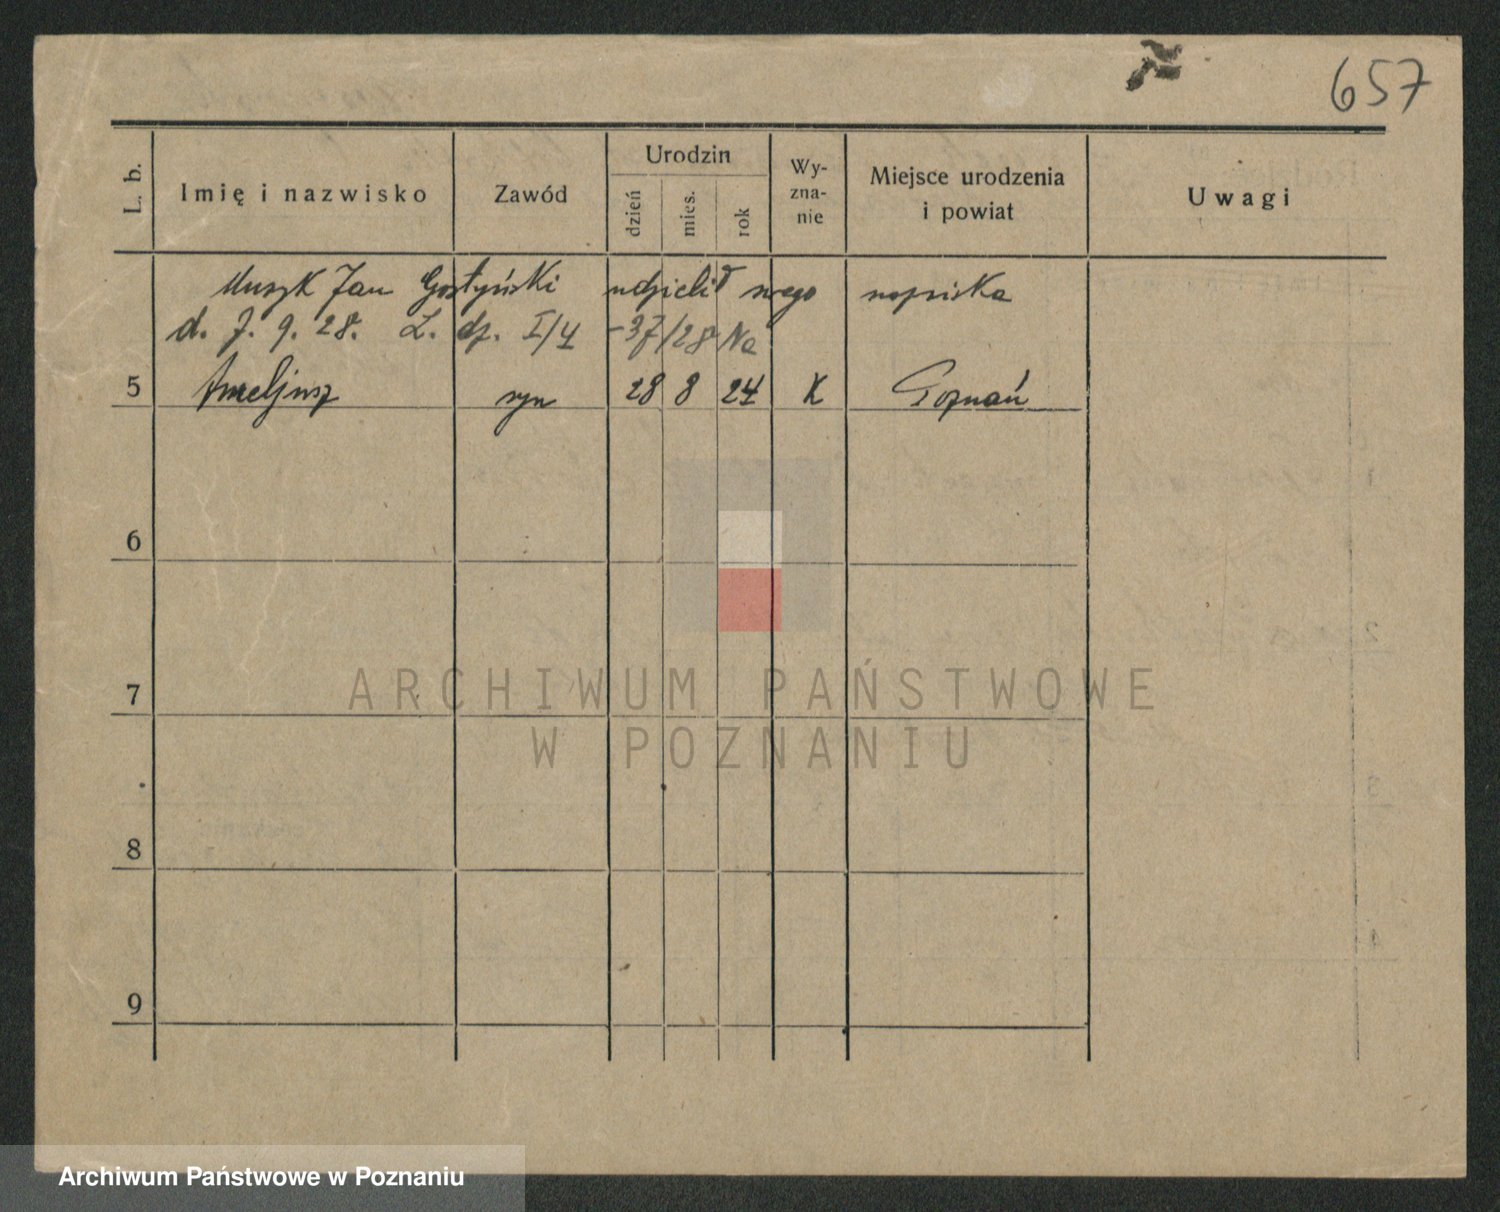 657
L. b.
Imię i nazwisko
Zawód
Urodzin
dzień
mies.
rok
Wy-
zna-
nie
Miejsce urodzenia
i powiat
Uwagi
Muszk Jan Gostyński udzielił swego nazwiska
d. 7. 9. 28. L. dz. I/4 -37/28 Na
5 Aureljusz syn 28 8 24 K Poznań
6
7
8
9
ARCHIWUM PAŃSTWOWE
W POZNANIU
Archiwum Państwowe w Poznaniu